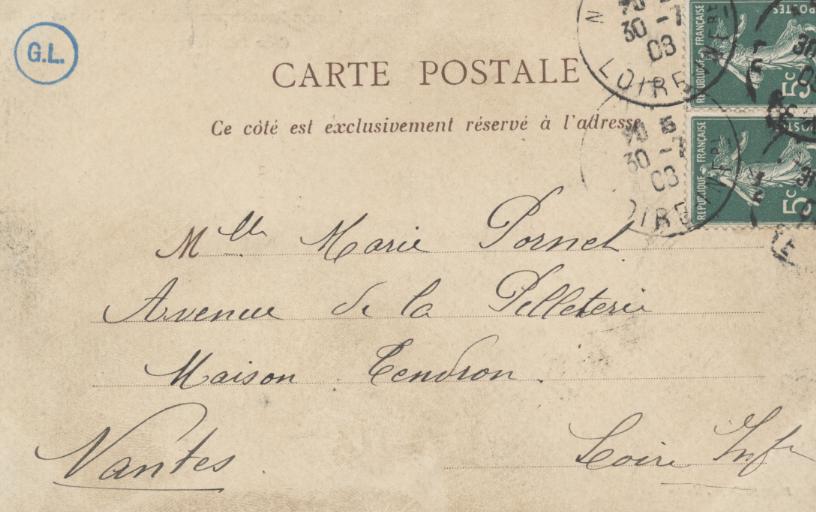 G.L.
CARTE POSTALE
Ce côté est exclusivement réservé à l'adresse
30 -7
08
LOIRE INFRE
REPUBLIQUE FRANÇAISE
POSTES
5c
30 -7
08
LOIRE INFRE
REPUBLIQUE FRANÇAISE
POSTES
5c
Mlle Marie Pornet
Avenue de la Pelleterie
Maison Tendron.
Nantes.
Loire Infre